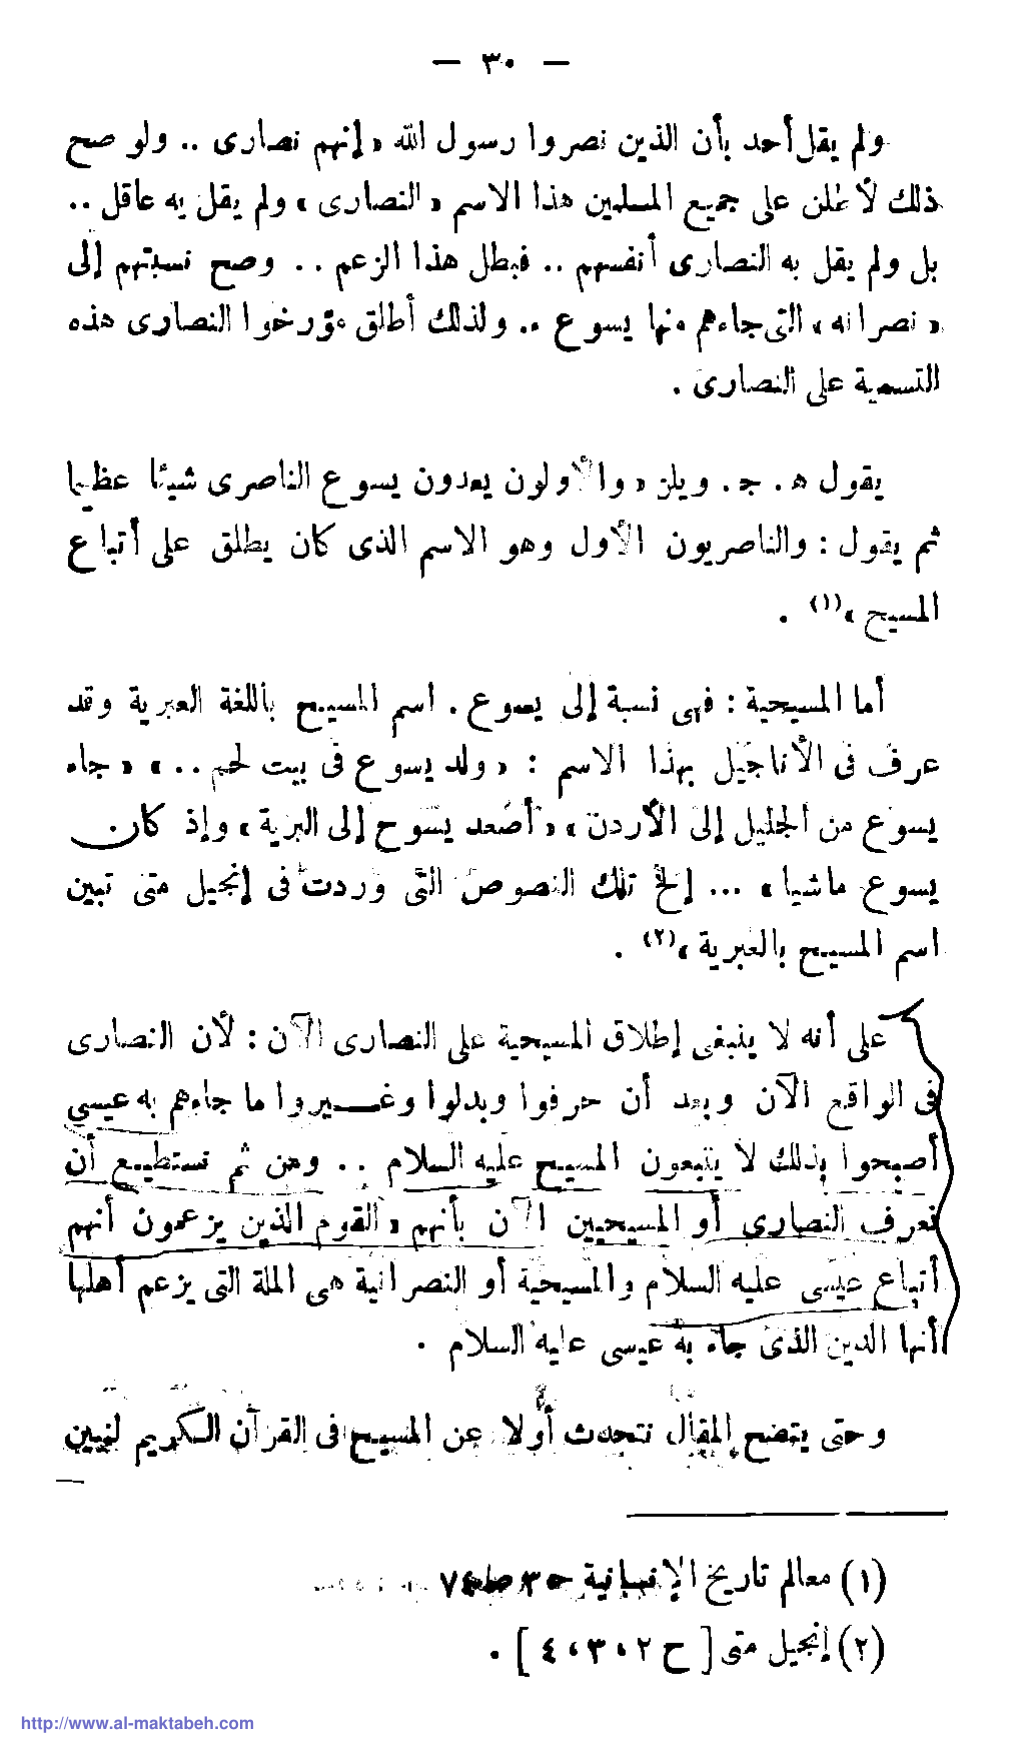 — ٣٠ —
ولم يقل أحد بأن الذين نصروا رسول الله « إنهم نصارى .. ولو صح
ذلك لأطلن على جميع المسلمين هذا الاسم « النصارى » ولم يقل به عاقل ..
بل ولم يقل به النصارى أنفسهم .. فبطل هذا الزعم .. وصح نسبتهم إلى
« نصرانه » التى جاءهم منها يسوع .. ولذلك أطلق مؤرخوا النصارى هذه
التسمية على النصارى .
يقول ه . ج . ويلز « والأولون يعدون يسوع الناصرى شيئا عظيما
ثم يقول : والناصريون الأول وهو الاسم الذى كان يطلق على أتباع
المسيح »(١) .
أما المسيحية : فهى نسبة إلى يسوع . اسم المسيح باللغة العبرية وقد
عرف فى الأناجيل بهذا الاسم : « ولد يسوع فى بيت لحم .. » « جاء
يسوع من الجليل إلى الأردن » « أصعد يسوح إلى البرية » وإذ كان
يسوع ماشيا » ... إلخ تلك النصوص التى وردت فى إنجيل متى تبين
اسم المسيح بالعبرية »(٢) .
على أنه لا ينبغى إطلاق المسيحية على النصارى الآن : لأن النصارى
فى الواقع الآن وبعد أن حرفوا وبدلوا وغــيروا ما جاءهم به عيسى
أصبحوا بذلك لا يتبعون المسيح عليه السلام .. ومن ثم نستطيع أن
نعرف النصارى أو المسيحيين الآن بأنهم « القوم الذين يزعمون أنهم
أتباع عيسى عليه السلام والمسيحية أو النصرانية هى الملة التى يزعم أهلها
أنها الدين الذى جاء به عيسى عليه السلام .
وحتى يتضح المقال نتحدث أولا عن المسيح فى القرآن الكريم لنبين
(١) معالم تاريخ الإنسانية ح ٣
(٢) إنجيل متى [ ح ٢ ، ٣ ، ٤ ] .
http://www.al-maktabeh.com